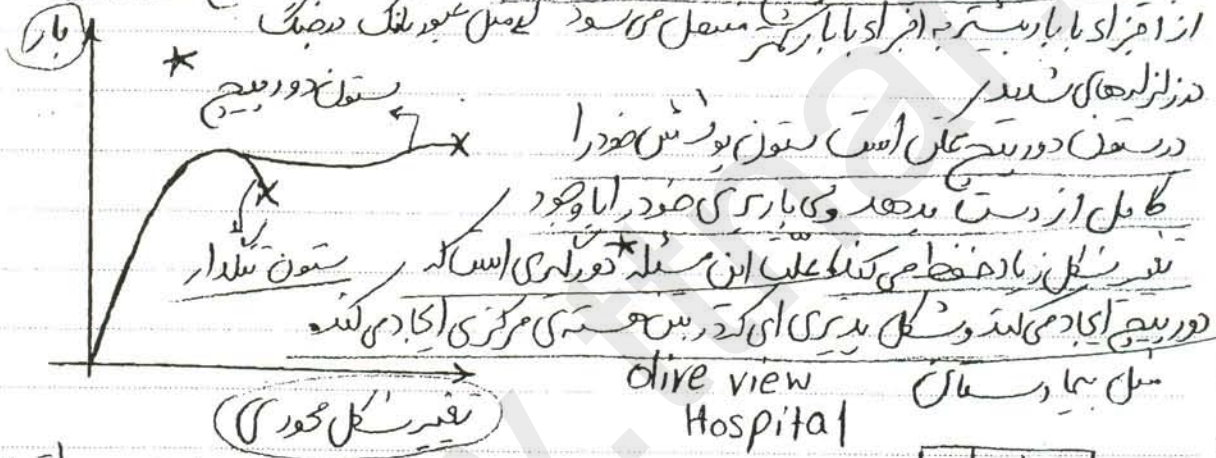 از اجزای با بار بیشتر به اجزای با بار کمتر منتقل می شود
بار
در زلزله های شدید
ستون دورپیچ
در ستون دورپیچ ممکن است ستون پوشش خود را
کامل از دست بدهد ولی باربری خود را با وجود
تغییر شکل زیاد حفظ می کند علت این مسئله دورگیری است که
ستون تنگدار
دورپیچ ایجاد می کند و شکل پذیری ای که در بتن هسته ی مرکزی ایجاد می کند.
مثل بیمارستان olive view
Hospital
تغییر شکل محوری